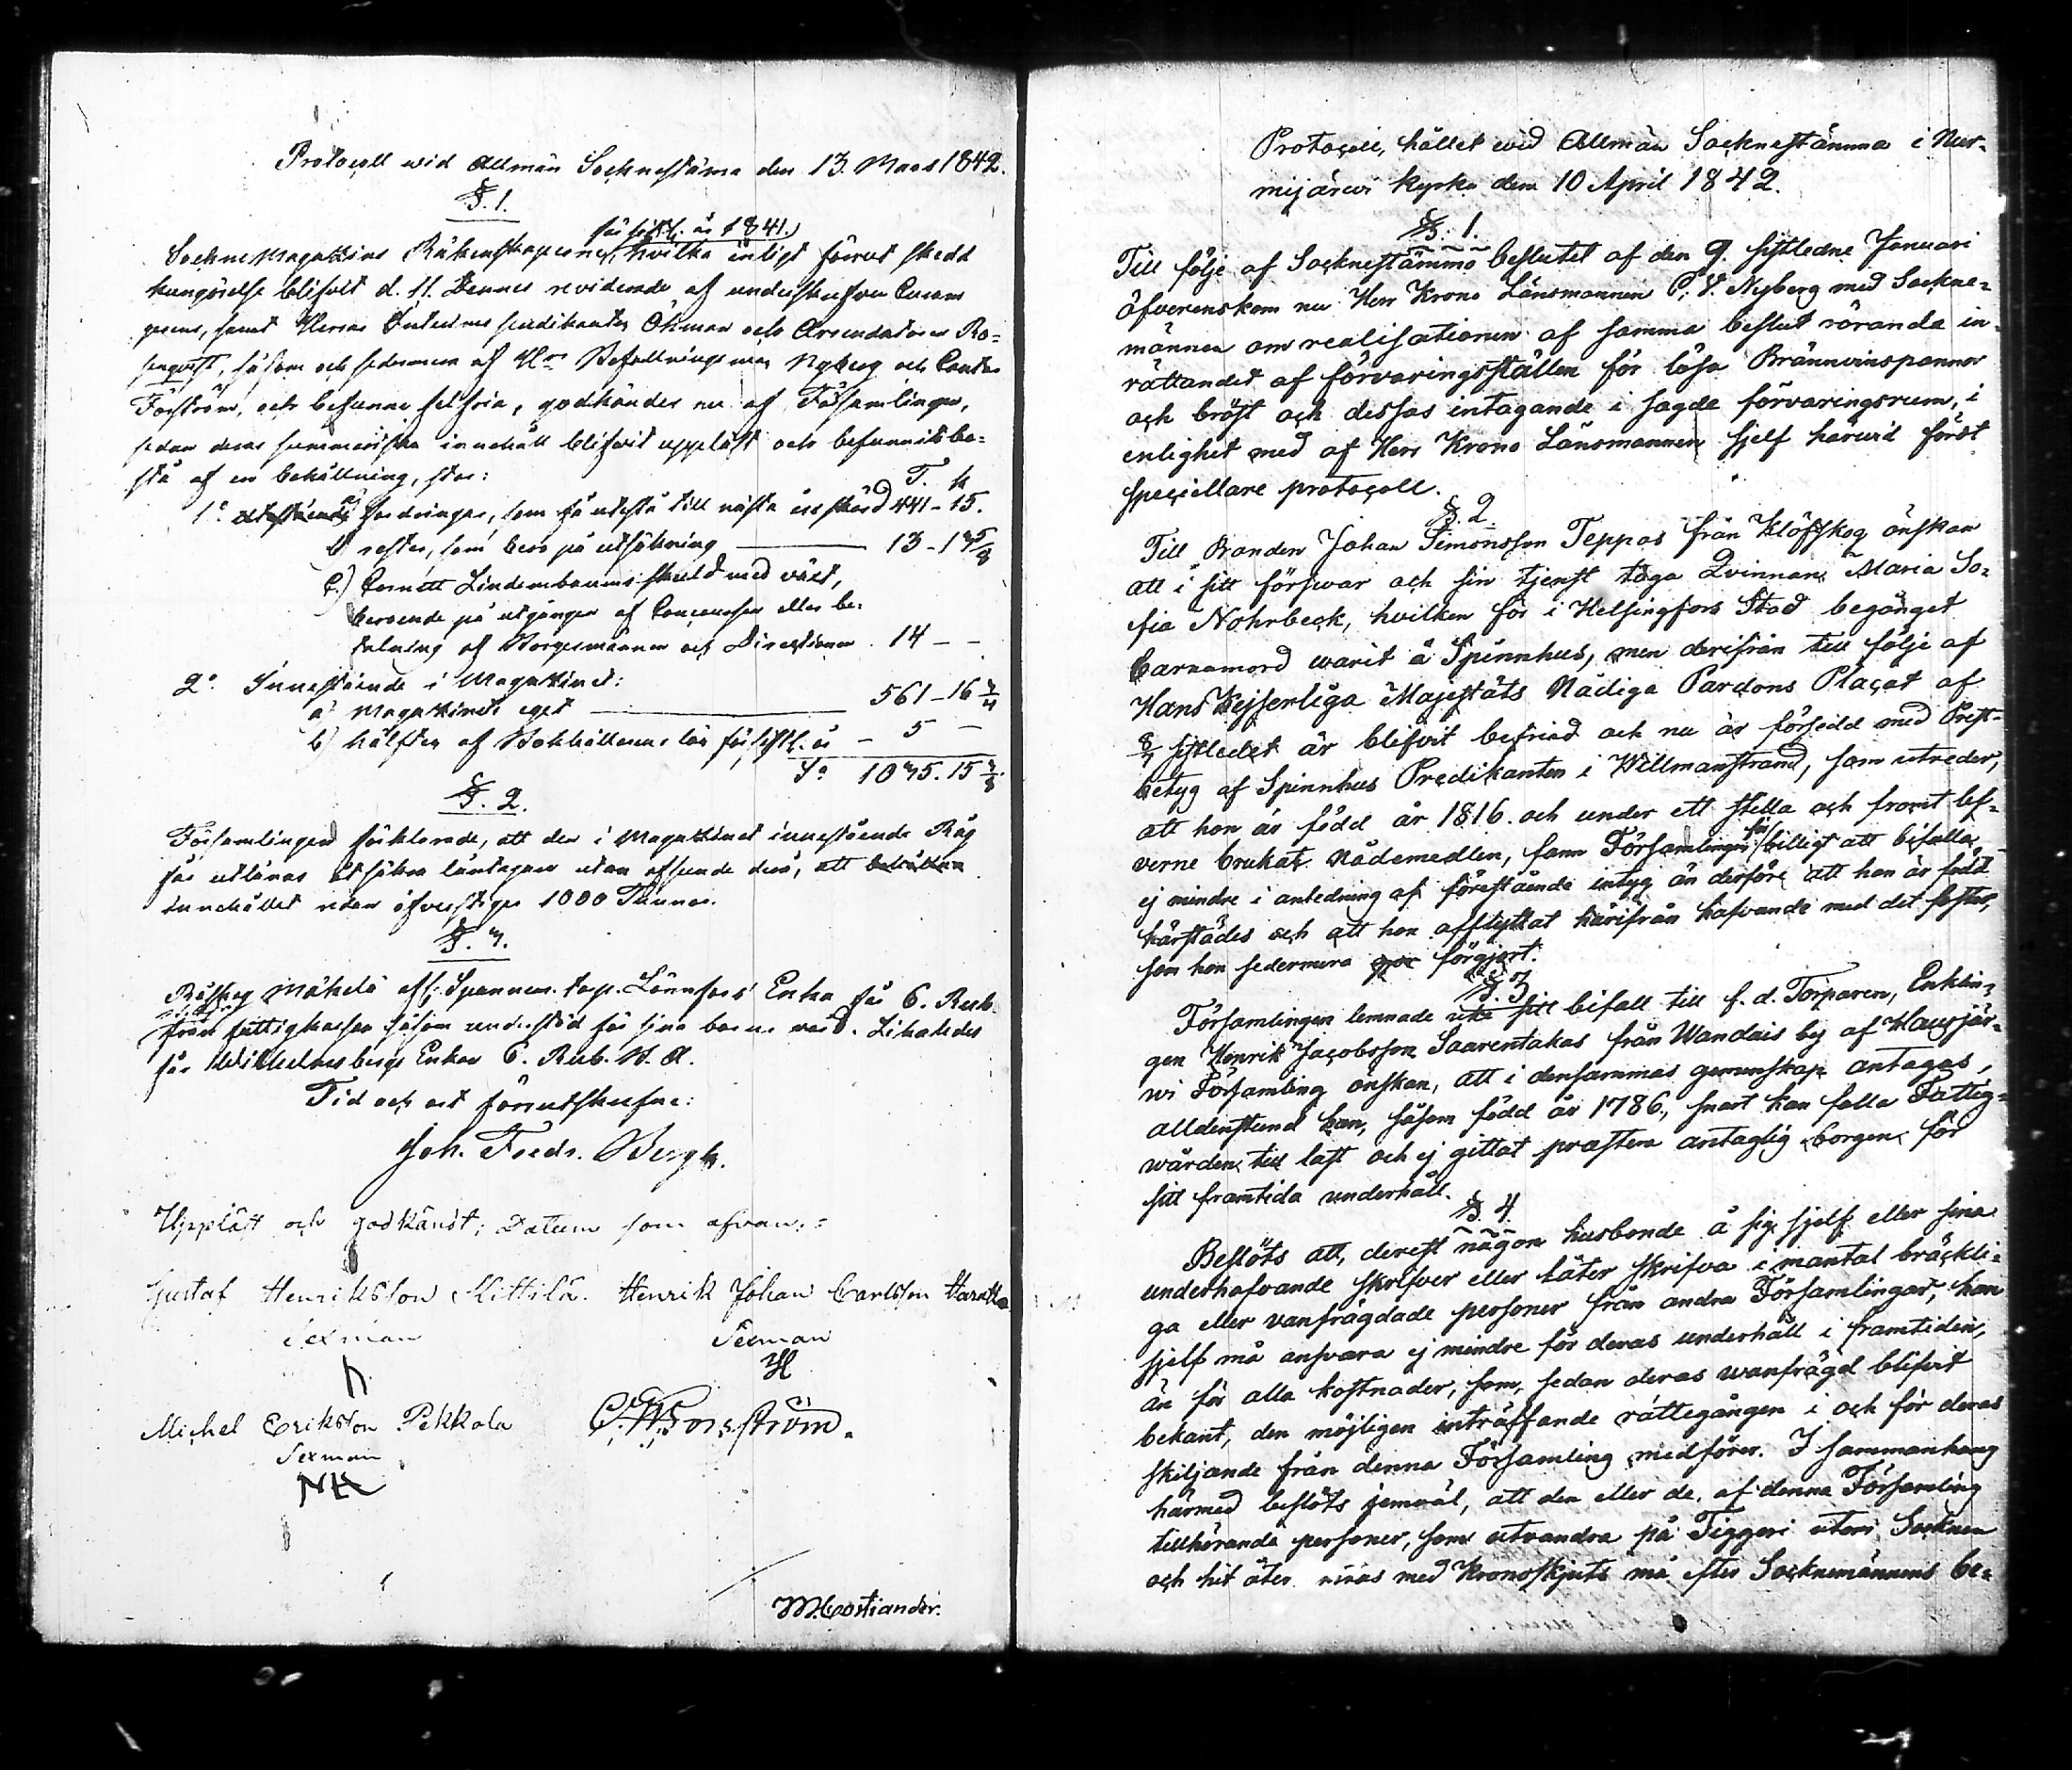 Protocoll wid Allmän Socknestäma den 13. Mars 1842.
§. 1.
för sistl. år 1841.
SockneMagazins Räkenskaperne, hvilka enligt förut skedd
kungörelse blifvit d. 11. Dennes reviderade af undertecknad
samt Herrar Öhman och Arrendatoren Ro=
senqvist, såsom och sedermera af Hrr Befallningsman Nyberg och
Forström, och befunne felfria, godkändes nu af Församlingen,
sedan deras summariska innehåll blifvit uppläst och befunnits be=
stå af en behållning, stor:
T. k
1º utestående fordringar, som få utestå till nästa års skörd 441 - 15.
b) rester, som bero på utsökning 13 - 17 5/8
c) Cornett Lindenbaums skuld med växt,
beroende på utgången af Concursen eller be=
talning af Borgesmännen och Directionen 14 - -
2º Innestående i Magazinet:
a) Magazinets eget 561 - 16
b) hälften af Bokhållarens lön för sistl. år - 5 -
Sª 1035. 15
§. 2.
Församlingen förklarade, att den i Magazinet innestående Råg
får utlånas åt säkra låntagare utan afseende derå, att behållna
innehållet redan öfverstiger 1000 Tunnor.
§. 3.
Röskog Mäkelä afl. Spannm. torp. Lönnfors' Enka får 6. Rub.
från fattigkassan såsom understöd för sina barns vård. Likaledes
får Wilhelmsbergs Enka 6. Rub. B. A.
Tid och ort förutskrefne:
Joh. Fredr. Bergh.
Uppläst och godkändt; Datum som ofvan:
Gustaf Henriksson Kittilä. Henrik Johan Carlsson Harakka
Sexman Sexman
Michel Eriksson Pekkola C. W. Forsström.
Sexman
M. Costiander.
Protocoll, hållet wid Allmän Socknestämma i Nur=
mijärwi kyrka den 10 April 1842.
§. 1.
Till följe af Sockenstämmo beslutet af den 9. sistledne Januari
öfverenskom nu Herr Krono Länsmannen P. V. Nyberg med Sockne=
männen om realisationen af samma beslut rörande in=
rättandet af förvaringsställen för lösa Brännvinspannor
och bröst och dessas intagande i sagde förvaringsrum, i
enlighet med af Herr Krono Länsmannen sjelf härwid fördt
speciellare protocoll.
§. 2
Till Bonden Johan Simonsson Teppos från Klöfskog önskan
att i sitt förswar och sin tjenst taga Qvinnan Maria So=
fia Nohrbeck, hvilken för i Helsingfors Stad begånget
barnamord warit å Spinnhus, men derifrån till följe af
Hans Kejserliga Majestäts Nådiga Pardons Placat af
8/7 sistledet år blifvit befriad och nu är försedd med Prest=
betyg af Spinnhus Predikanten i Willmanstrand, som utreder,
att hon är född år 1816. och under ett stilla och fromt lef=
verne brukat nådemedlen, fann Församlingen för billigt att bifalla
ej mindre i anledning af förestående intyg än derföre att hon är född
härstädes och att hon afflyttat härifrån hafvande med det foster,
som hon sedermera förgjort.
§. 3
Församlingen lemnade icke sitt bifall till f. d. Torparen, Enklin=
gen Henrik Jacobsson Saarentakas från Wandais by af Hausjär=
wi Församling önskan, att i densammas gemenskap antagas,
alldenstund han, såsom född år 1786, snart kan falla Fattig=
wården till last och ej gittat præstera antaglig borgen för
sitt framtida underhåll.
§. 4.
Beslöts att, derest någon husbonde å sig sjelf eller sina
underhafvande skrifver eller låter skrifva i mantal bräckli=
ga eller vanfrägdade personer från andra Församlingar, han
sjelf må ansvara ej mindre för deras underhåll i framtiden,
än för alla kostnader, som, sedan deras wanfrägd blifvit
bekant, den möjligen inträffande rättegången i och för deras
skiljande från denna Församling medförer. I sammanhang
härmed beslöts jemwäl, att den eller de, af denna Församling
tillhörande personer, som utvandra på Tiggeri utom Socknen
och hit åter med Kronoskjuts må efter Socknemännens be=